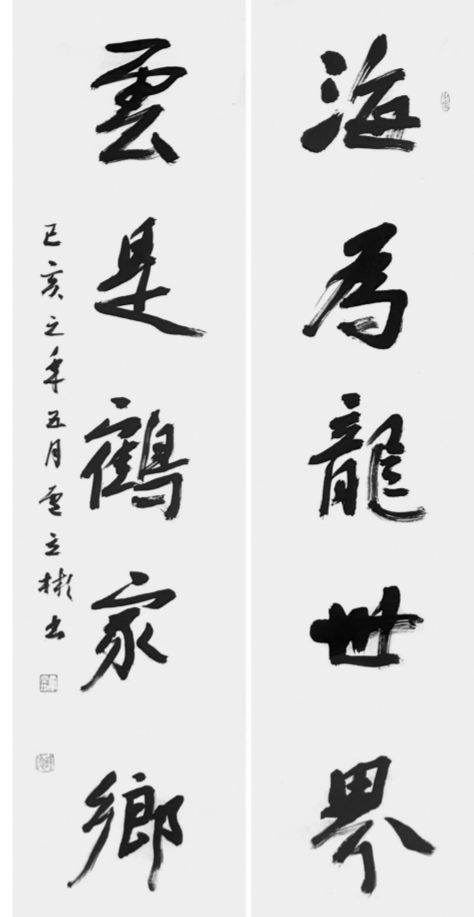 海為龍世界
雲是鶴家鄉
己亥之年五月立彬书